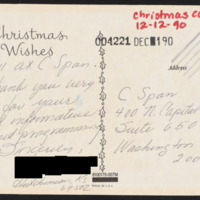 Christmas
Wishes
Christmas Ca
12-12-90
004221 DEC 190
Address
all at C Span.
Thank you very
for your
informative
programming
Sincerely,
C Span
400 N. Capitol
Suite 650
Washington
200
Hutchinson, KS